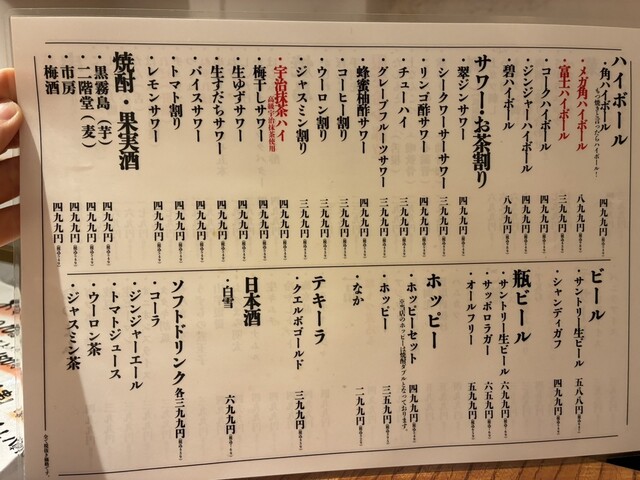 ハイボール
・角ハイボール 四九九円
もつ焼きと言ったらハイボール！
・メガ角ハイボール 八九九円
・富士ハイボール 三九九円
・コークハイボール 四九九円
・ジンジャーハイボール 四九九円
・碧ハイボール 八九九円
サワー・お茶割り
・翠ジンサワー 四九九円
・シークワーサーサワー 四九九円
・リンゴ酢サワー 四九九円
・チューハイ 三九九円
・グレープフルーツサワー 三九九円
・蜂蜜柚酢サワー 四九九円
・コーヒー割り 三九九円
・ウーロン割り 三九九円
・ジャスミン割り 三九九円
・宇治抹茶ハイ 四九九円
高級宇治抹茶使用
・梅干しサワー 四九九円
・生ゆずサワー 四九九円
・生すだちサワー 四九九円
・バイスサワー 四九九円
・トマト割り 四九九円
・レモンサワー 四九九円
焼酎・果実酒
・黒霧島（芋） 四九九円
・二階堂（麦） 四九九円
・市房 四九九円
・梅酒 四九九円
ビール
・サントリー生ビール 五八八円
・シャンディガフ 四九九円
瓶ビール
・サントリー生ビール 六九九円
・サッポロラガー 六五九円
・オールフリー 五九九円
ホッピー
・ホッピーセット 四九九円
※当店のホッピーは焼酎ダブルとなっております。
・ホッピー 三五九円
・なか 二九九円
テキーラ
・クエルボゴールド 三九九円
日本酒
・白雪 六九九円
ソフトドリンク 各三九九円
・コーラ
・ジンジャーエール
・トマトジュース
・ウーロン茶
・ジャスミン茶